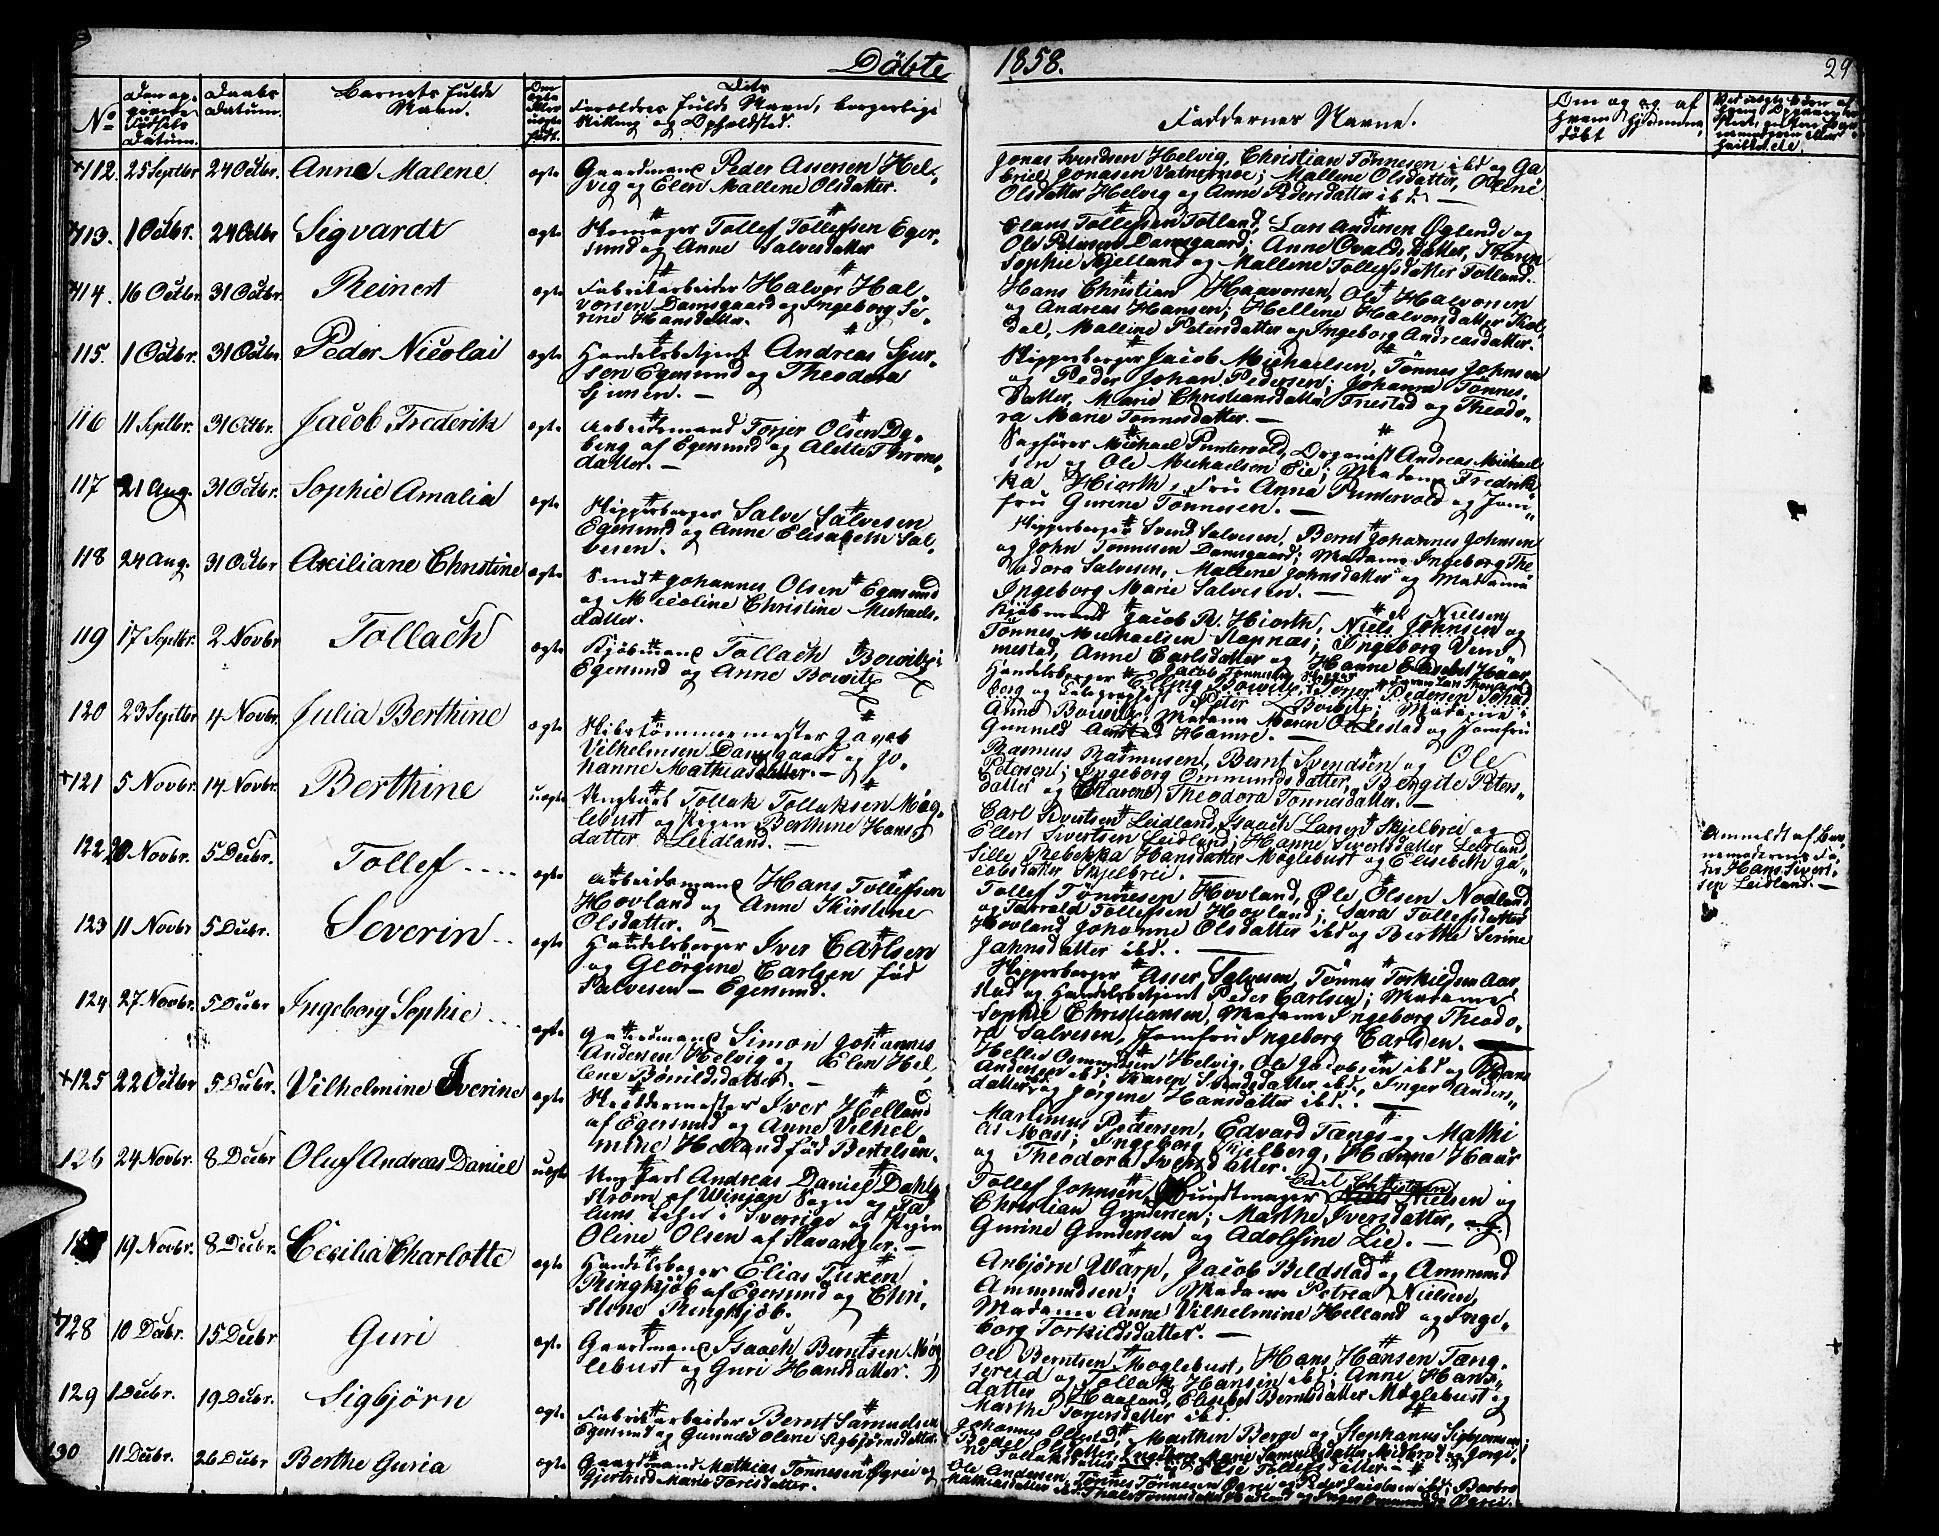 Döbte 1858. 29
No
Den op-
givne
Födsels
Datum.
Daabs
Datum.
Barnets fulde
Navn.
Om
ægte
eller
uægte
födt.
Dets
Forældres fulde Navn, borgerlige
Stilling og Opholdsted.
Faddernes Navne.
Om og af
hvem hjemme-
döbt
112. 25 Septbr 24 Octbr. Anne Malene. ægte
Gaardmand Peder Assersen Hel-
vig og Elen Mallene Olsdatter.
Jonas Svendsen Helvig, Christian Tönnesen ibd og Ga
briel Jonasen Vatnemoe; Mallene Olsdatter, Olene
Olsdatter Helvig og Anne Pedersdatter ibd. —
113. 1 Octbr. 24 Octbr Sigvardt ægte
Skomager Tollef Tollefsen Eger-
sund og Anne Salvesdatter
Olaus Tollefsen Totland, Lars Andersen Øglende og
Ole Petersen Damsgaard; Anne Ovalds Datter, Karen
Sophie Kjelland og Mallene Tollefsdatter Totland.
114. 16 Octbr. 31 Octbr. Reinert ægte
Fabrikarbeider Halvor Hal
vorsen Damsgaard og Ingeborg Se-
rine Hansdatter.
Hans Christian Haavorsen, Ole Halvorsen
og Andreas Hansen; Hellene Halvorsdatter Kol-
dal, Mallene Petersdatter og Ingeborg Andreasdatter.
115. 1 Octbr. 31 Octbr Peder Nicolai ægte
Handelsbetjent Andreas Sjur-
sen Egersund og Theodora
Sjursen. —
Skipperborger Jacob Michaelsen, Tönnes Johnsen
og Peder Johan Pedersen; Johanna Tönnes-
datter, Marie Christiansdatter Friestad og Theodo-
ra Marie Tönnesdatter. —
116 11 Septbr. 31 Octbr. Jacob Frederik ægte
Arbeidsmand Torjer Olsen Dy-
bing af Egersund og Alette Thorns-
datter. —
Sagförer Michael Puntervold, Organist Andreas Michael
sen og Ole Michaelsen Eie; Madame Fredrik
ka Hiorth, Fru Anna Puntervold og Jom-
fru Gurine Tönnesen. —
117 21 Aug. 31 Octbr. Sophie Amalia ægte
Skipperborger Salve Salvesen
Egersund og Anne Elisabeth Sal-
vesen.
Skipperborger Svend Salvesen, Bernt Johannes Johnsen
og John Tönnesen Damsgaard; Madame Ingeborg The
odora Salvesen, Mallene Johnsdatter og Madame
Ingeborg Marie Salvesen. —
118 24 Aug. 31 Octbr Axiliane Christine ægte
Smed Johannes Olsen Egersund
og Nicoline Christine Michaels-
datter.
Kjöbmand Jacob R. Hiorth, Niels Nielsen
Tönnes Michaelsen Rapnæs; Ingeborg Vem
mestad, Anne Carlsdatter og Hanne Elisabet Haar
119 17 Septbr. 2 Novbr Tollach ægte
Kjöbmand Tollach Bowitz i
Egersund og Anne Bowitz
120 23 Septbr 4 Novbr. Julia Berthine ægte
Skibstömmermester Jacob
Vilhelmsen Damsgaard og Jo-
hanne Mathiasdatter. —
Rasmus Rasmusen, Bernt Svendsen og Ole
Petersen; Ingeborg Ommundsdatter, Bergite Peters-
datter og Theodora Tönnesdatter. —
121 5 Novbr. 14 Novbr. Berthine uægte
Ungkarl Tollak Tollaksen Møg-
lebust og Pigen Berthine Hans-
datter Leidland. —
Carl Sivertsen Leidland, Isaach Larsen Skjelbrei og
Ellert Sivertsen Leidland; Hanne Sivertsdatter Leidland
Sille Rebekka Hansdatter Møglebust og Elisebeth Ja-
cobsdatter Skjelbrei. —
Anmeldt af Bar-
nemoderens Fa-
der Hans Sivert-
sen Leidland. —
122 20 Novbr. 5 Decbr. Tollef .... ægte
Arbeidsmand Hans Tollefsen
Hovland og Anne Kirstine
Olsdatter. —
Tollef Tönnesen Hovland, Ole Olsen Nodland
og Tarrald Tollefsen Hovland; Sara Tollefsdatter
Hovland Johanne Olsdatter ibd og Berthe Serine
Jahnsdatter ibd. —
123 11 Novbr 5 Decbr. Severin .. ægte
Handelsborger Iver Carlsen
og Geörgine Carlsen född
Salvesen — Egersund.
Skipperborger Asser Salvesen, Tönnes Torkildsen Aar
stad og Handelsbetjent Peder Carlsen; Madame
Sophie Christiansen, Madame Ingeborg Theodo-
ra Salvesen, Jomfru Ingeborg Carlsen. —
124 27 Novbr. 5 Decbr Ingeborg Sophie ... ægte
Gaardmand Simon Johannes
Andersen Helvig og Elen Hel-
lene Bönildsdatter. —
Hellie Ommundsen Helvig, Ole Jacobsen ibd og Hans
Andersen ibd; Karen Svendsdatter ibd, Inger Anders-
datter ibd og Jörgine Hansdatter ibd. —
125 22 Octbr 5 Decbr. Vilhelmine Iverine ægte
Skræddermester Iver Helland
af Egersund og Anne Vilhel
mine Helland född Bertelsen.
Martinus Pedersen, Edvard Tængs og Mathi
as Moss; Ingeborg Kjelberg, Hanne Haar
og Theodora Svendsdatter. —
126 24 Novbr. 8 Decbr Oluf Andreas Daniel uægte
Ungkarl Andreas Daniel Dahl
ström af Winjan Sogn og Fa
luns Lehn i Sverrige og Pigen
Oline Olsen af Stavanger. —
Tollef Johnsen, Buntmager Carl Christian Nielsen og
Christian Gundersen; Marthe Iversdatter,
Gurine Gundersen og Adolfine Lie. —
127 19 Novbr. 8 Decbr. Cecilia Charlotte ægte
Handelsborger Elias Tuxen
Ringkjöb af Egersund og Chri-
stene Ringkjöb.
Anbjörn Warp, Jacob Beldstad og Ammund
Ammundsen; Madame Petrea Nielsen,
Madame Anne Vilhelmine Helland og Inge-
borg Torkildsdatter. —
128 10 Decbr. 15 Decbr Guri ægte
Gaardmand Isaach Berntsen Møg
lebust og Guri Hansdatter.
Ole Berntsen Møglebust, Hans Hansen Tæng-
sereid og Tollak Hansen ibd; Anne Hans-
datter Haaland, Elisabet Berntsdatter Møglebust og
Marthe Torgersdatter ibd.
129 1 Decbr. 19 Decbr. Sigbjörn ægte
Fabrikarbeider Bernt Samuelsen
Egersund og Gunnild Olene Sigbjörnsdatter
130 11 Decbr. 26 Decbr Berthe Guria ægte
Gaardmand Mathias Tönnesen Øgrei og
Gjertrud Marie Torisdatter.